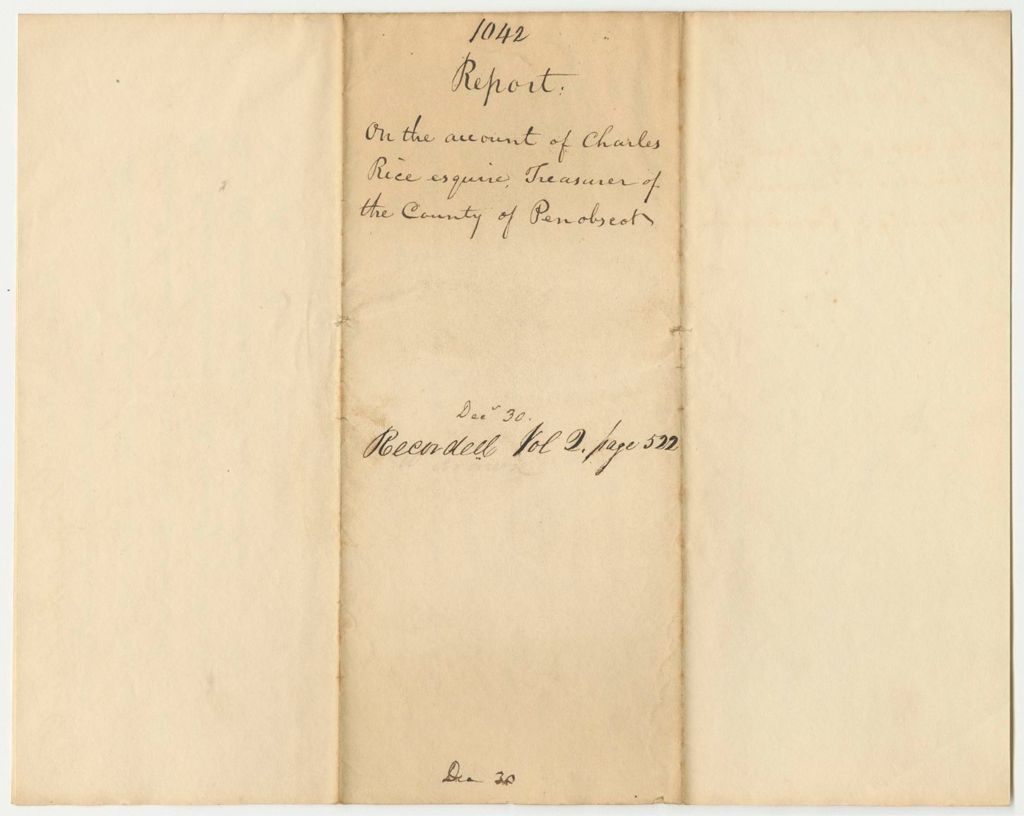 1042
Report.
On the account of Charles
Rice esquire, Treasurer of
the County of Penobscot
Decr 30.
Recorded Vol 2. page 522
Dec 30